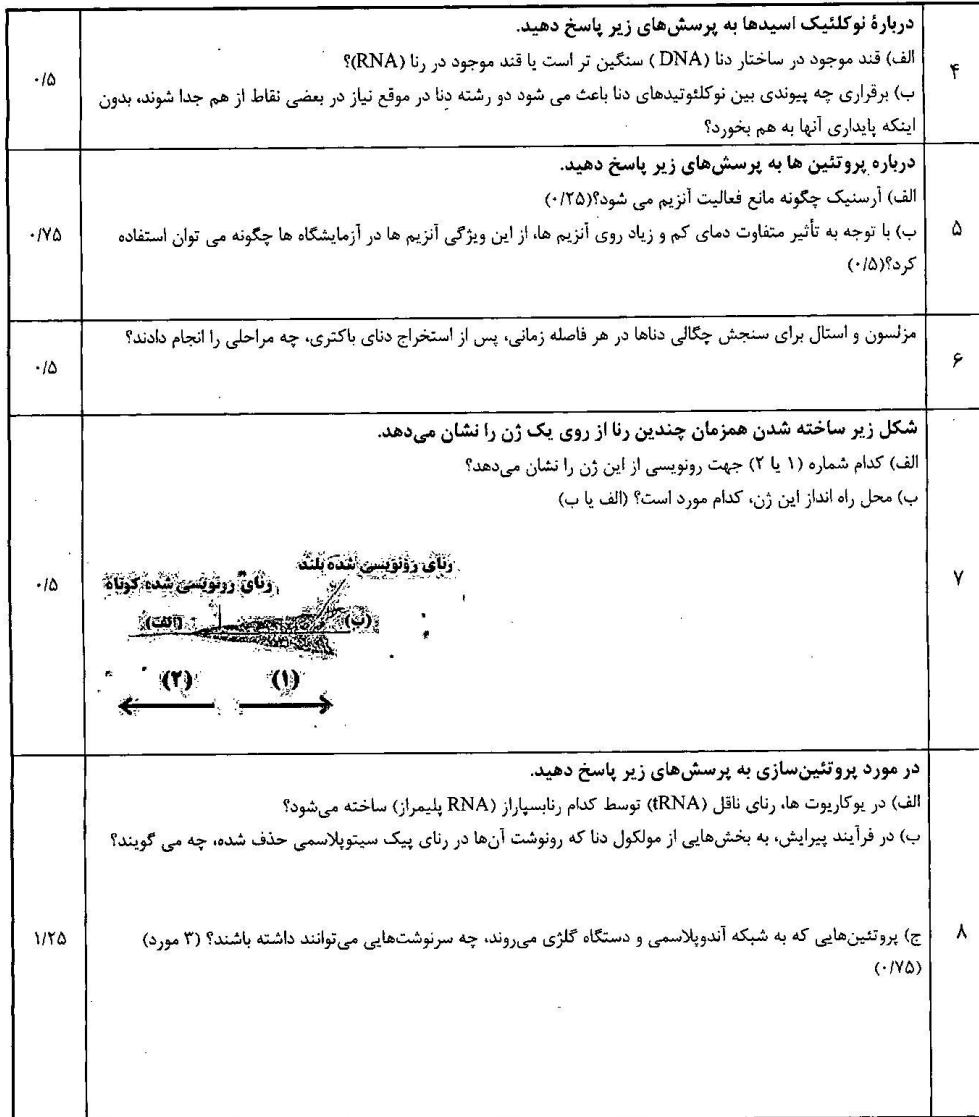 ۴
دربارهٔ نوکلئیک اسیدها به پرسش‌های زیر پاسخ دهید.
الف) قند موجود در ساختار دنا (DNA) سنگین تر است یا قند موجود در رنا (RNA)؟
ب) برقراری چه پیوندی بین نوکلئوتیدهای دنا باعث می شود دو رشته دنا در موقع نیاز در بعضی نقاط از هم جدا شوند، بدون
اینکه پایداری آنها به هم بخورد؟
۰/۵
۵
درباره پروتئین ها به پرسش‌های زیر پاسخ دهید.
الف) آرسنیک چگونه مانع فعالیت آنزیم می شود؟(۰/۲۵)
ب) با توجه به تأثیر متفاوت دمای کم و زیاد روی آنزیم ها، از این ویژگی آنزیم ها در آزمایشگاه ها چگونه می توان استفاده
کرد؟(۰/۵)
۰/۷۵
۶
مزلسون و استال برای سنجش چگالی دناها در هر فاصله زمانی، پس از استخراج دنای باکتری، چه مراحلی را انجام دادند؟
۰/۵
۷
شکل زیر ساخته شدن همزمان چندین رنا از روی یک ژن را نشان می‌دهد.
الف) کدام شماره (۱ یا ۲) جهت رونویسی از این ژن را نشان می‌دهد؟
ب) محل راه انداز این ژن، کدام مورد است؟ (الف یا ب)
رنای رونویسی شده بلند
رنای رونویسی شده کوتاه
(ب)
(الف)
(۱)
(۲)
۰/۵
۸
در مورد پروتئین‌سازی به پرسش‌های زیر پاسخ دهید.
الف) در یوکاریوت ها، رنای ناقل (tRNA) توسط کدام رنابسپاراز (RNA پلیمراز) ساخته می‌شود؟
ب) در فرآیند پیرایش، به بخش‌هایی از مولکول دنا که رونوشت آن‌ها در رنای پیک سیتوپلاسمی حذف شده، چه می گویند؟
ج) پروتئین‌هایی که به شبکه آندوپلاسمی و دستگاه گلژی می‌روند، چه سرنوشت‌هایی می‌توانند داشته باشند؟ (۳ مورد)
(۰/۷۵)
۱/۲۵